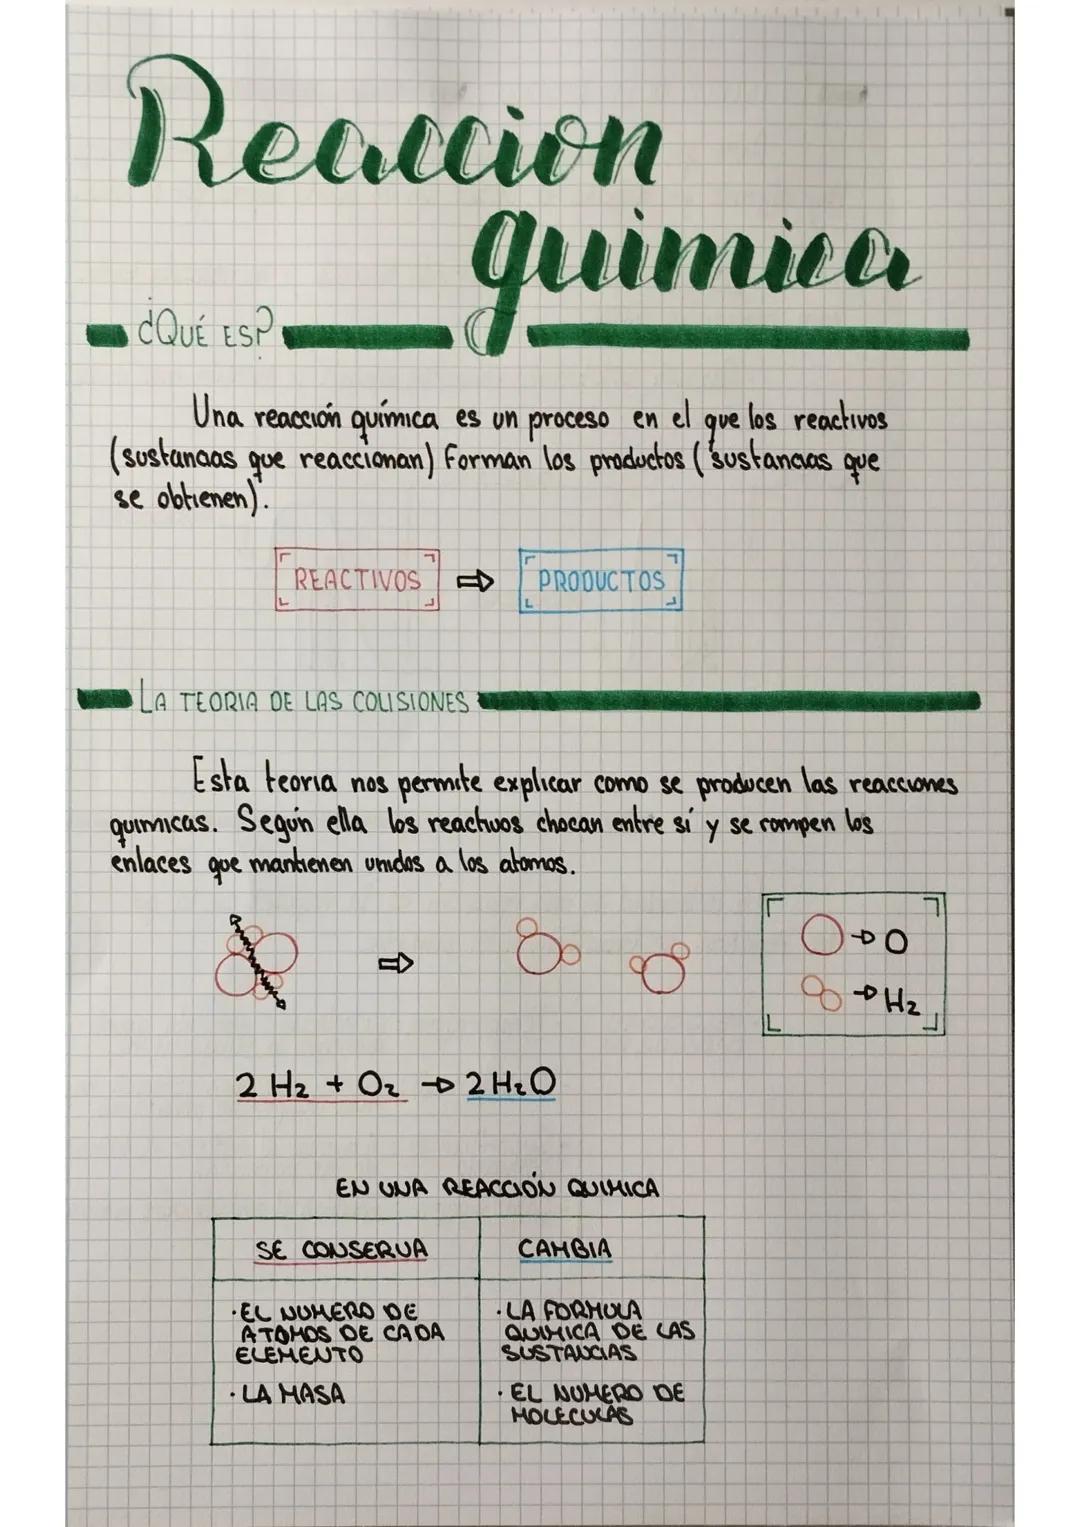 Reaccion
quimica
¿QUÉ ES?
Una reacción química es un proceso en el que los reactivos
(sustancias que reaccionan) Forman los productos (sustancias que
se obtienen).
REACTIVOS ⇒ PRODUCTOS
LA TEORIA DE LAS COLISIONES
Esta teoria nos permite explicar como se producen las reacciones
quimicas. Según ella los reactivos chocan entre sí y se rompen los
enlaces que mantienen unidos a los atomos.
⇒
→ O
→ H₂
2 H₂ + O₂ → 2 H₂O
EN UNA REACCIÓN QUIMICA
SE CONSERVA
CAMBIA
· EL NUMERO DE
ATOMOS DE CADA
ELEMENTO
· LA MASA
· LA FORMULA
QUIMICA DE LAS
SUSTANCIAS
· EL NUMERO DE
MOLECULAS